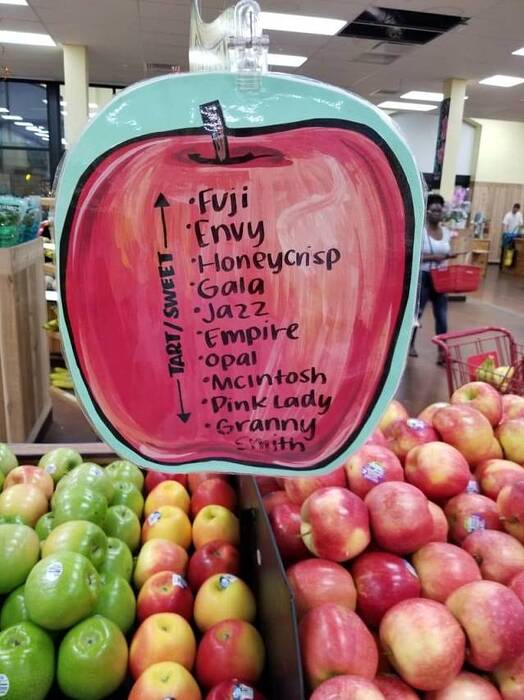 TART/SWEET
•Fuji
•Envy
•Honeycrisp
•Gala
•Jazz
•Empire
•Opal
•McIntosh
•Pink Lady
•Granny
Smith